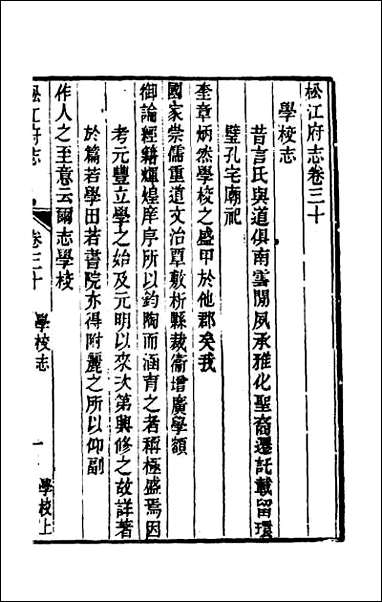 松江府志卷三十
學校志
昔言氏與道俱南雲間夙承雅化聖裔遷託載留環
璧孔宅廟祀
奎章炳然學校之盛甲於他郡矣我
國家崇儒重道文治覃敷析縣裁衞增廣學額
御論經籍輝煌庠序所以鈞陶而涵育之者稱極盛焉因
考元豐立學之始及元明以來次第興修之故詳著
於篇若學田若書院亦得附麗之所以仰副
作人之至意云爾志學校
松江府志
卷三十
學校志
一
學校上